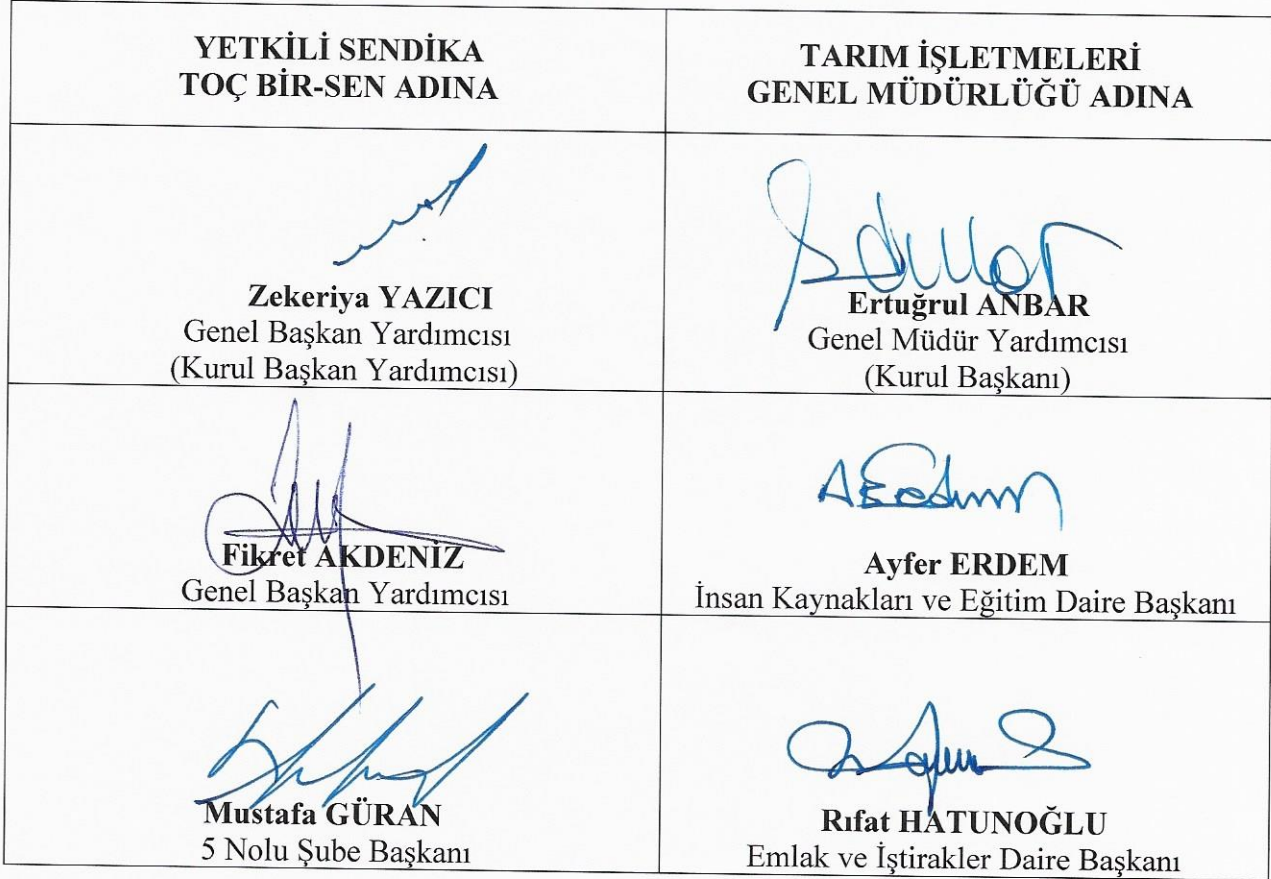 YETKİLİ SENDİKA
TOÇ BİR-SEN ADINA
TARIM İŞLETMELERİ
GENEL MÜDÜRLÜĞÜ ADINA
Zekeriya YAZICI
Genel Başkan Yardımcısı
(Kurul Başkan Yardımcısı)
Ertuğrul ANBAR
Genel Müdür Yardımcısı
(Kurul Başkanı)
Fikret AKDENİZ
Genel Başkan Yardımcısı
Ayfer ERDEM
İnsan Kaynakları ve Eğitim Daire Başkanı
Mustafa GÜRAN
5 Nolu Şube Başkanı
Rıfat HATUNOĞLU
Emlak ve İştirakler Daire Başkanı